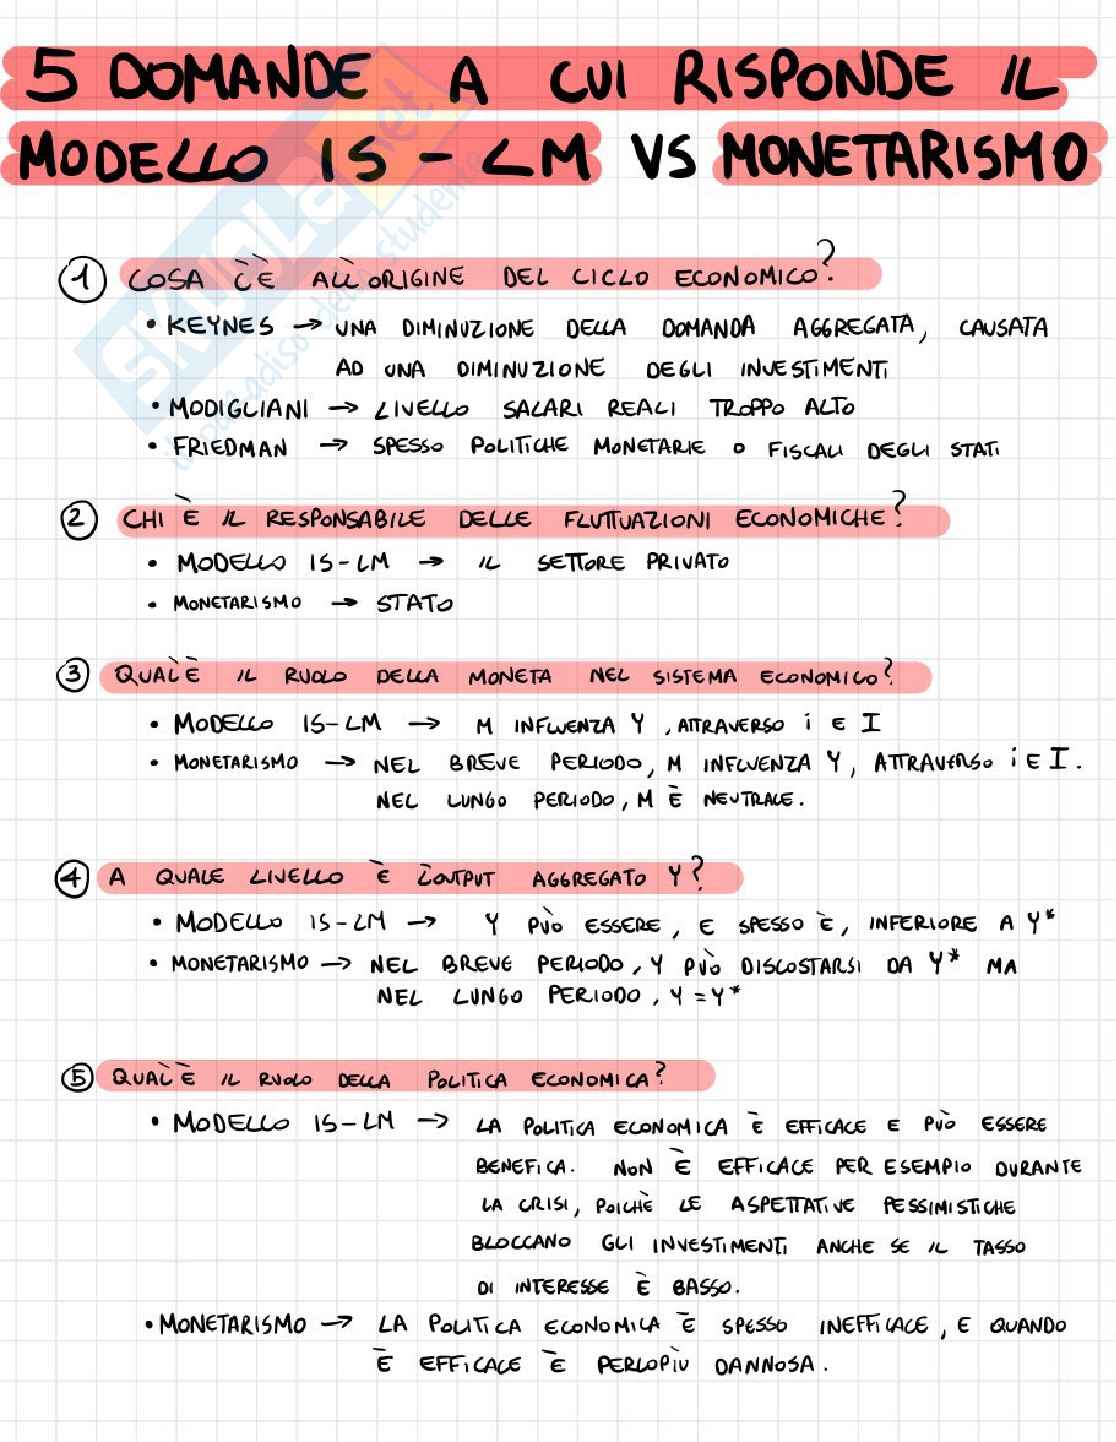 5 DOMANDE A CUI RISPONDE IL
MODELLO IS - LM VS MONETARISMO
1 COSA C'È ALL'ORIGINE DEL CICLO ECONOMICO?
• KEYNES → UNA DIMINUZIONE DELLA DOMANDA AGGREGATA, CAUSATA
AD UNA DIMINUZIONE DEGLI INVESTIMENTI
• MODIGLIANI → LIVELLO SALARI REALI TROPPO ALTO
• FRIEDMAN → SPESSO POLITICHE MONETARIE O FISCALI DEGLI STATI
2 CHI È IL RESPONSABILE DELLE FLUTTUAZIONI ECONOMICHE?
• MODELLO IS-LM → IL SETTORE PRIVATO
• MONETARISMO → STATO
3 QUAL'È IL RUOLO DELLA MONETA NEL SISTEMA ECONOMICO?
• MODELLO IS-LM → M INFLUENZA Y, ATTRAVERSO i E I
• MONETARISMO → NEL BREVE PERIODO, M INFLUENZA Y, ATTRAVERSO i E I.
NEL LUNGO PERIODO, M È NEUTRALE.
4 A QUALE LIVELLO È L'OUTPUT AGGREGATO Y?
• MODELLO IS-LM → Y PUÒ ESSERE, E SPESSO È, INFERIORE A Y*
• MONETARISMO → NEL BREVE PERIODO, Y PUÒ DISCOSTARSI DA Y* MA
NEL LUNGO PERIODO, Y = Y*
5 QUAL'È IL RUOLO DELLA POLITICA ECONOMICA?
• MODELLO IS-LM → LA POLITICA ECONOMICA È EFFICACE E PUÒ ESSERE
BENEFICA. NON È EFFICACE PER ESEMPIO DURANTE
LA CRISI, POICHÈ LE ASPETTATIVE PESSIMISTICHE
BLOCCANO GLI INVESTIMENTI ANCHE SE IL TASSO
DI INTERESSE È BASSO.
• MONETARISMO → LA POLITICA ECONOMICA È SPESSO INEFFICACE, E QUANDO
È EFFICACE È PERLOPIÙ DANNOSA.
SKUOLA.net
il paradiso dello studente